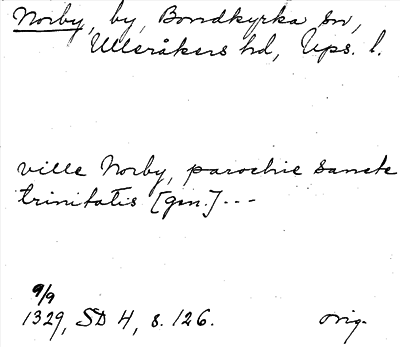 Norby, by, Bondkyrka sn,
Ulleråkers hd, Ups. l.
ville Norby, parochie sancte
trinitatis [gen.] ---
9/9
1329, SD 4, s. 126. orig.